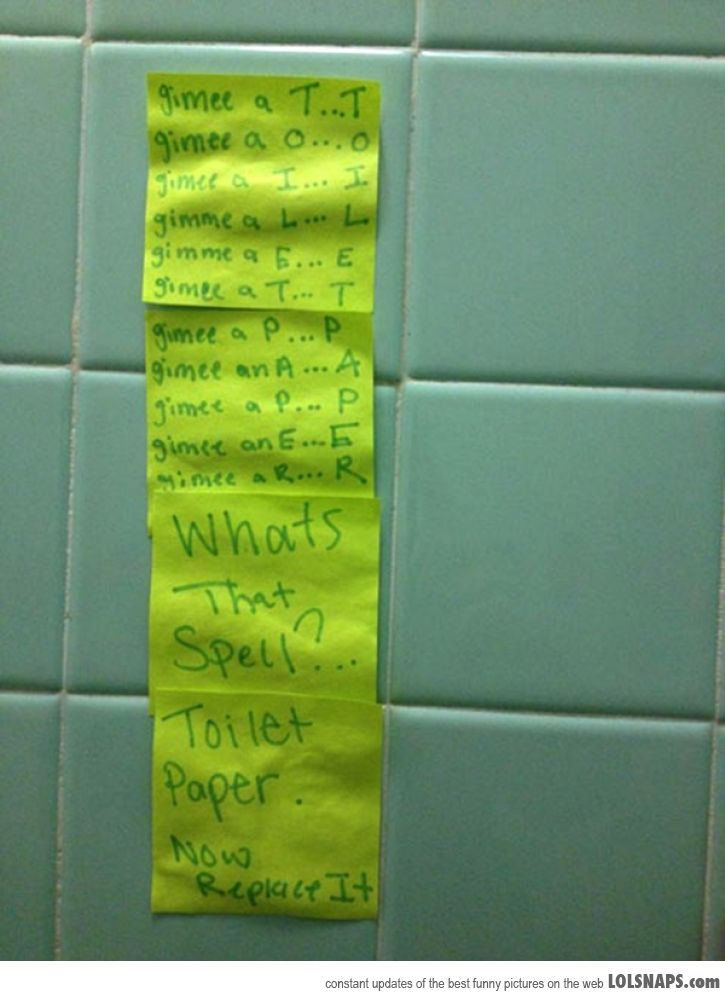 gimee a T...T
gimee a O...O
gimee a I... I
gimme a L... L
gimme a E... E
gimee a T... T
gimee a P...P
gimee an A...A
gimee a P... P
gimee an E...E
gimee a R... R
Whats
That
Spell?...
Toilet
Paper.
Now
Replace It
constant updates of the best funny pictures on the web LOLSNAPS.com